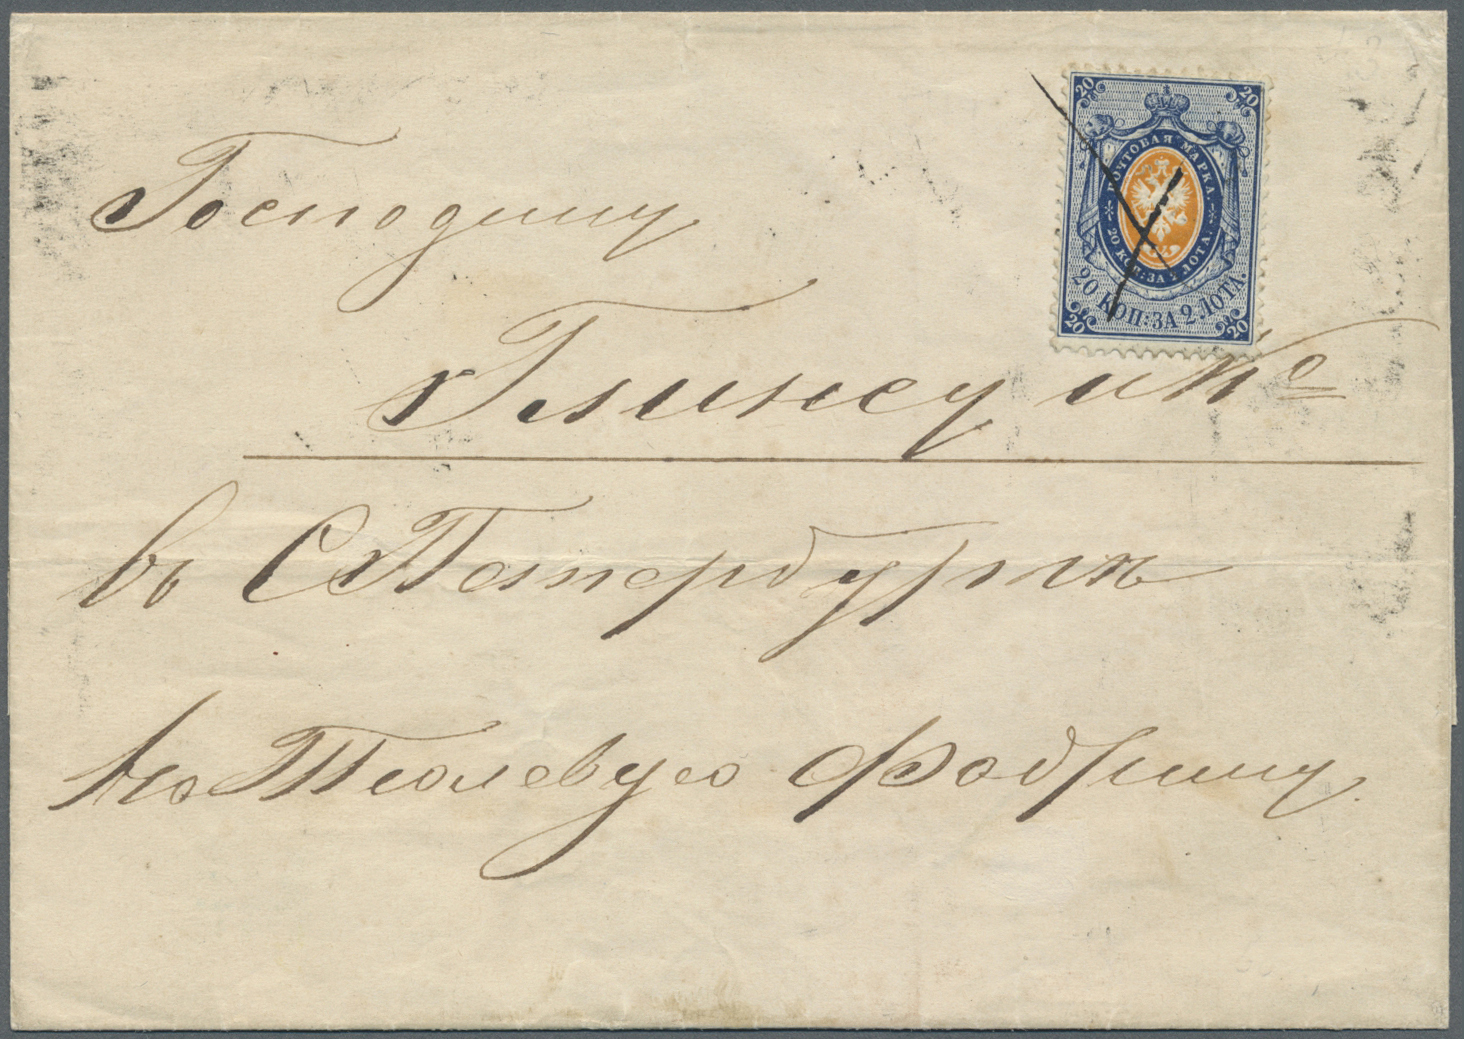 20 20
ПОЧТОВАЯ МАРКА.
20 КОП: ЗА 2 ЛОТА.
20 КОП: ЗА 2 ЛОТА.
20 20
Господину
Глинсу и Ко
въ С Петербургъ
На фабрику